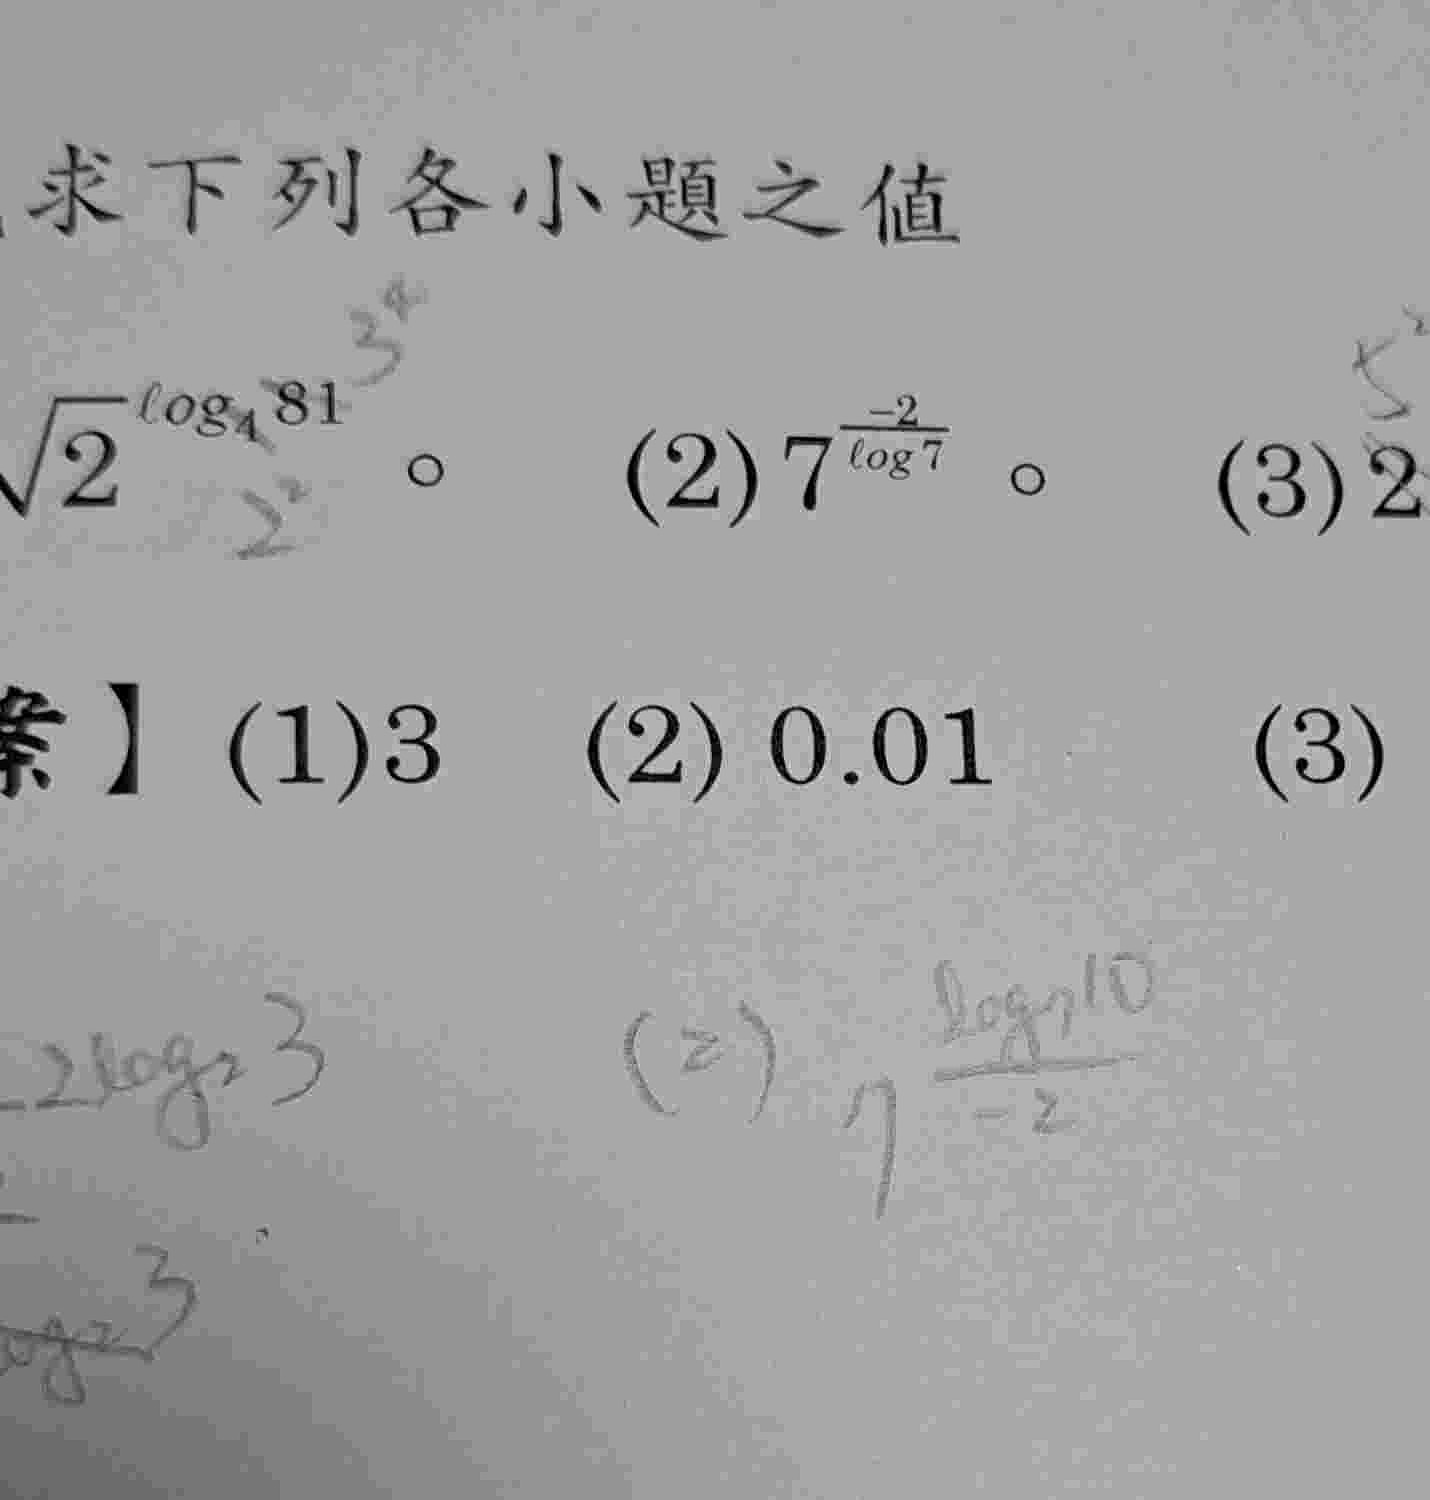 求下列各小題之值
3⁴ 5²
√2^{log₄81}。 (2) 7^{\frac{-2}{log7}}。 (3) 2
2²
案】(1)3 (2) 0.01 (3)
2log₂3 (2) 7^{\frac{log₇10}{-2}}
log₂3